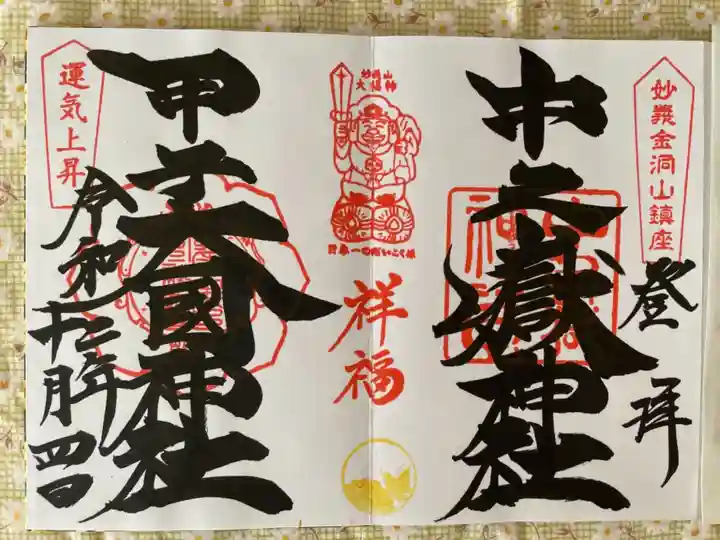 妙義金洞山鎮座
登拝
中之嶽神社
妙義山
大福神
日本一のだいこく様
祥福
運気上昇
甲子大國神社
令和二年
十月四日